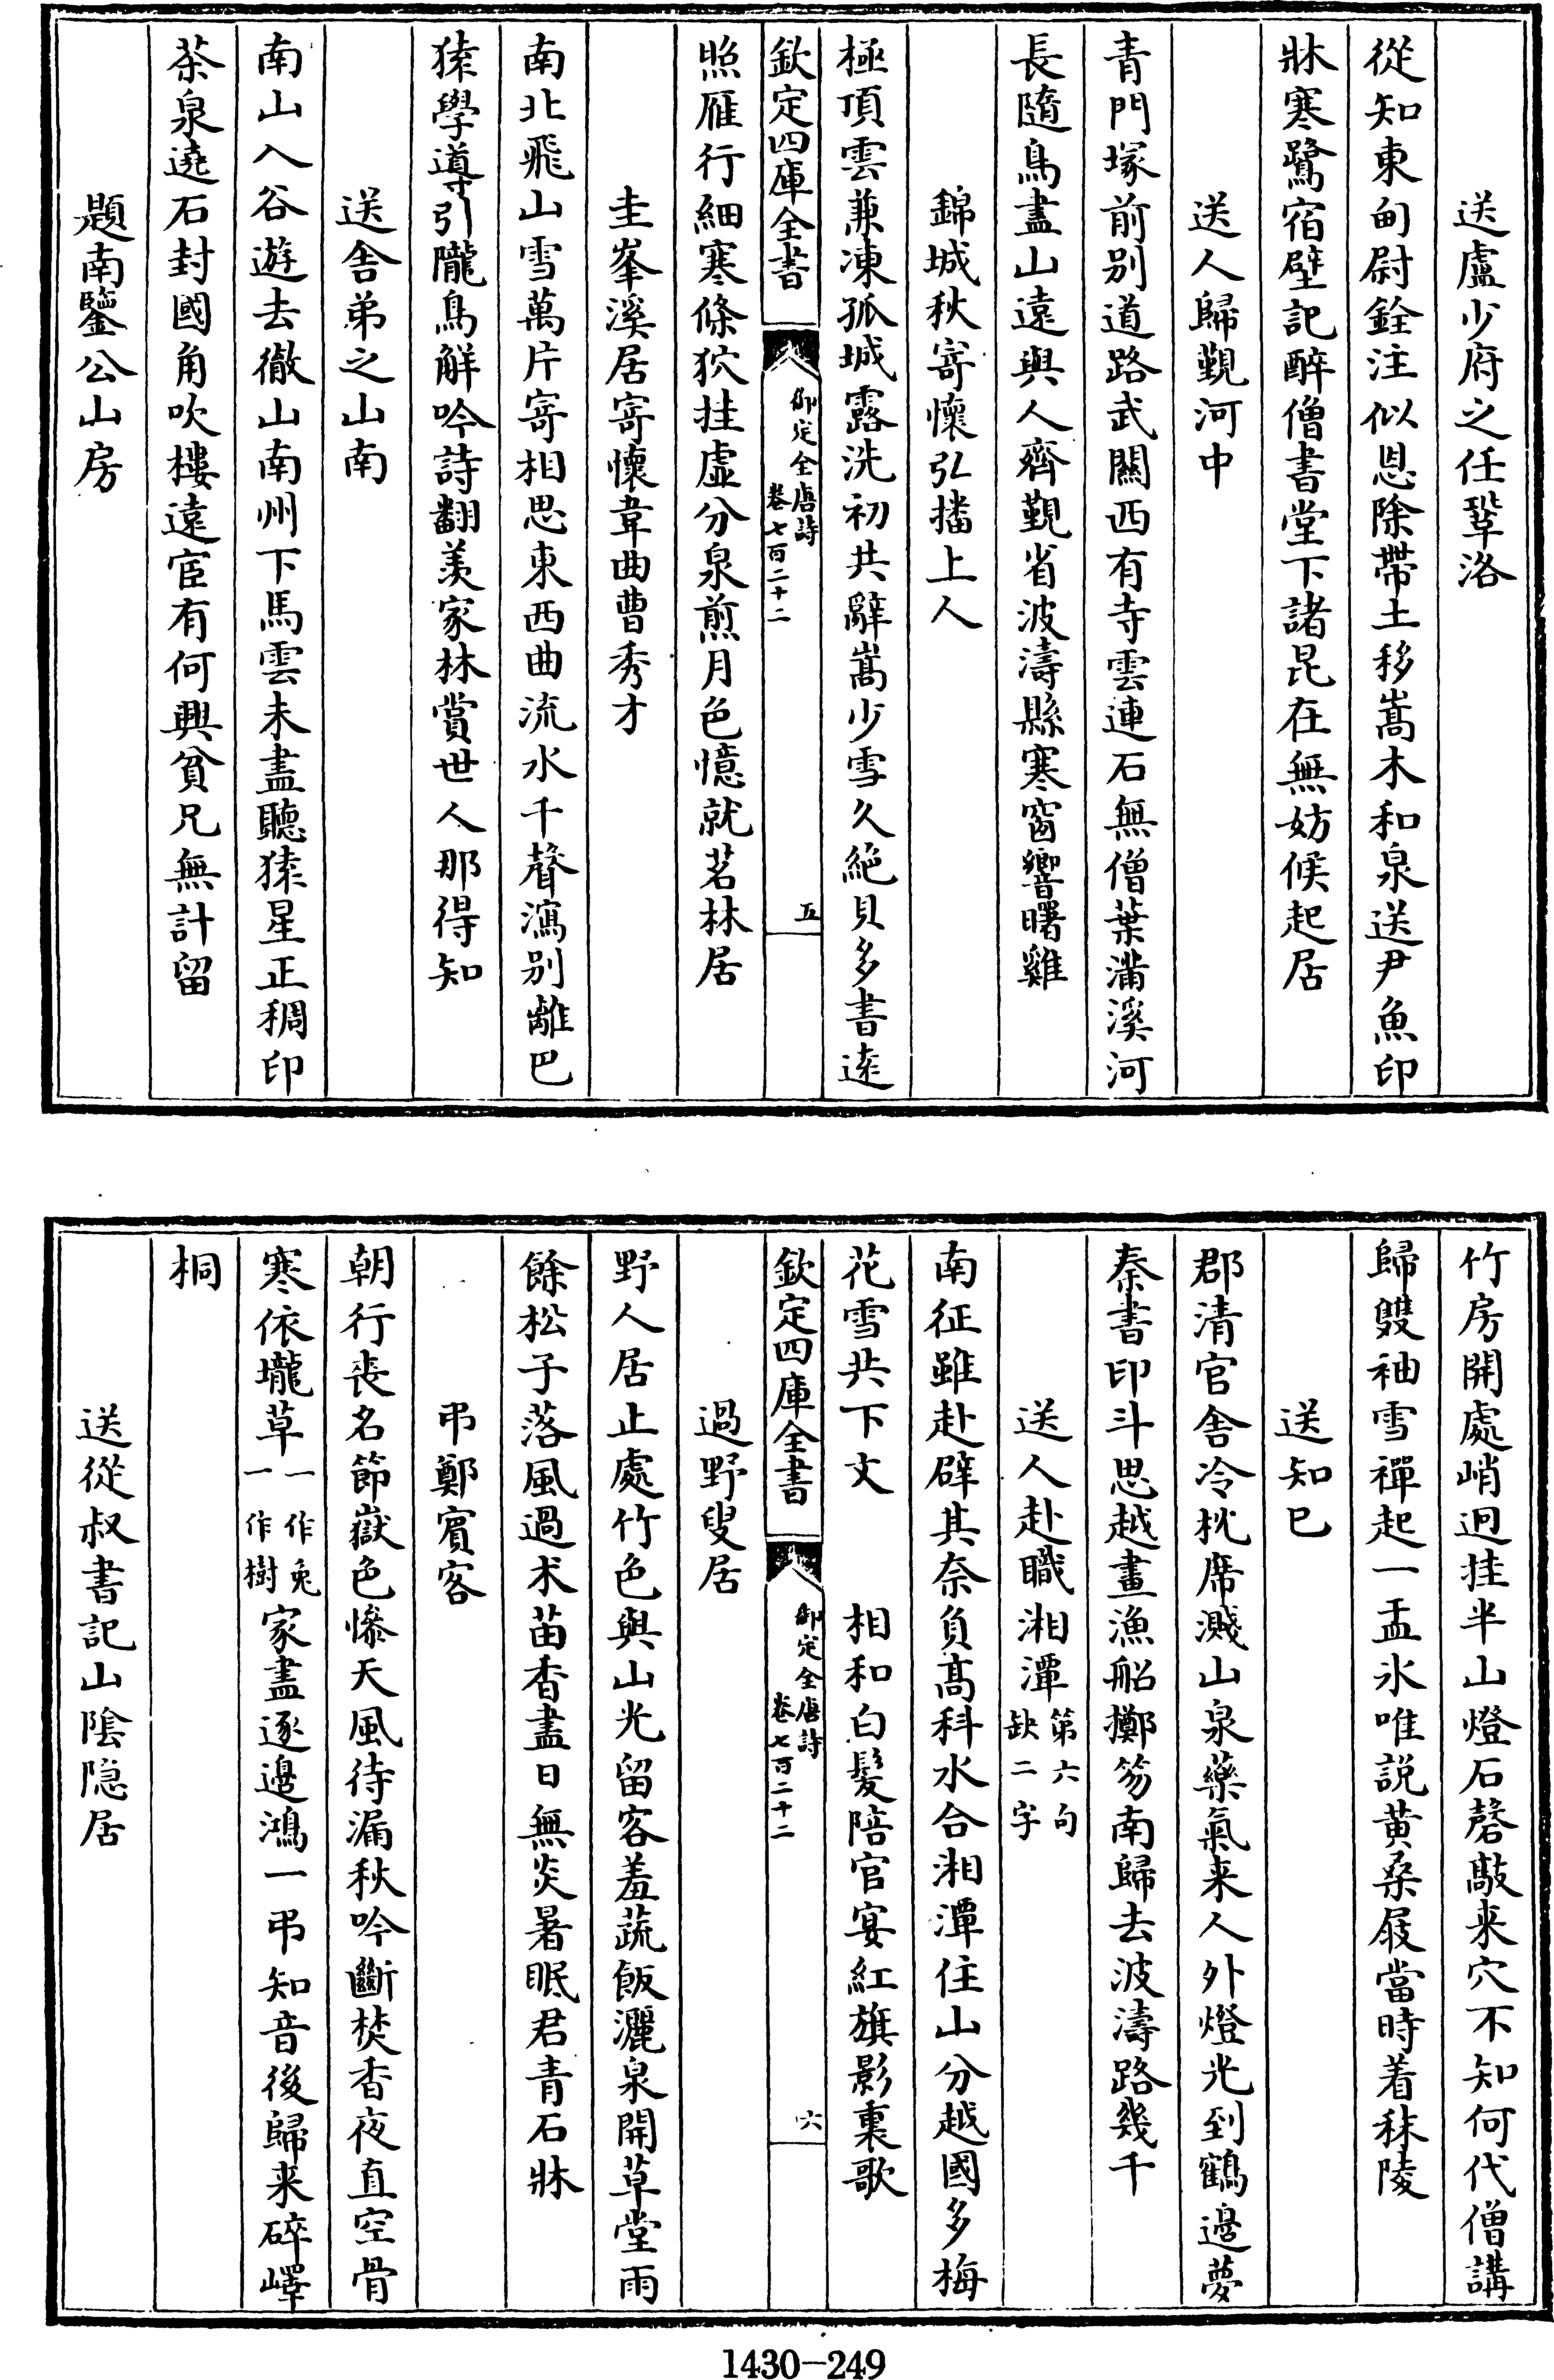 送盧少府之任鞏洛
從知東甸尉銓注似恩除帶土移嵩木和泉送尹魚印
牀寒鷺宿壁記醉僧書堂下諸昆在無妨候起居
送人歸覲河中
青門塚前别道路武關西有寺雲連石無僧葉滿溪河
長隨鳥盡山遠與人齊覲省波濤縣寒窗響曙雞
錦城秋寄懷弘播上人
極頂雲兼凍孤城露洗初共辭嵩少雪久絶貝多書遠
欽定四庫全書
御定全唐詩
卷七百二十二
五
照雁行細寒條狖挂虚分泉煎月色憶就茗林居
圭峯溪居寄懷韋曲曹秀才
南北飛山雪萬片寄相思東西曲流水千聲瀉别離巴
猿學導引隴鳥解吟詩翻羡家林賞世人那得知
送舍弟之山南
南山入谷遊去徹山南州下馬雲未盡聽猿星正稠印
茶泉遶石封國角吹樓遠宦有何興貧兄無計留
題南鑒公山房
竹房開處峭迥挂半山燈石磬敲来穴不知何代僧講
歸雙袖雪禪起一盂氷唯説黄桑屐當時着秣陵
送知已
郡清官舍冷枕席濺山泉藥氣来人外燈光到鶴邉夢
秦書印斗思越畫漁船擲笏南歸去波濤路幾千
送人赴職湘潭第六句缺二字
南征雖赴辟其奈負髙科水合湘潭住山分越國多梅
花雪共下文　　相和白髮陪官宴紅旗影裏歌
欽定四庫全書
御定全唐詩
卷七百二十二
六
過野叟居
野人居止處竹色與山光留客羞蔬飯灑泉開草堂雨
餘松子落風過术苗香盡日無炎暑眠君青石牀
弔鄭賓客
朝行喪名節嶽色慘天風待漏秋吟斷焚香夜直空骨
寒依壠草一作兎一作樹家盡逐邉鴻一弔知音後歸来碎嶧
桐
送從叔書記山陰隠居
1430-249